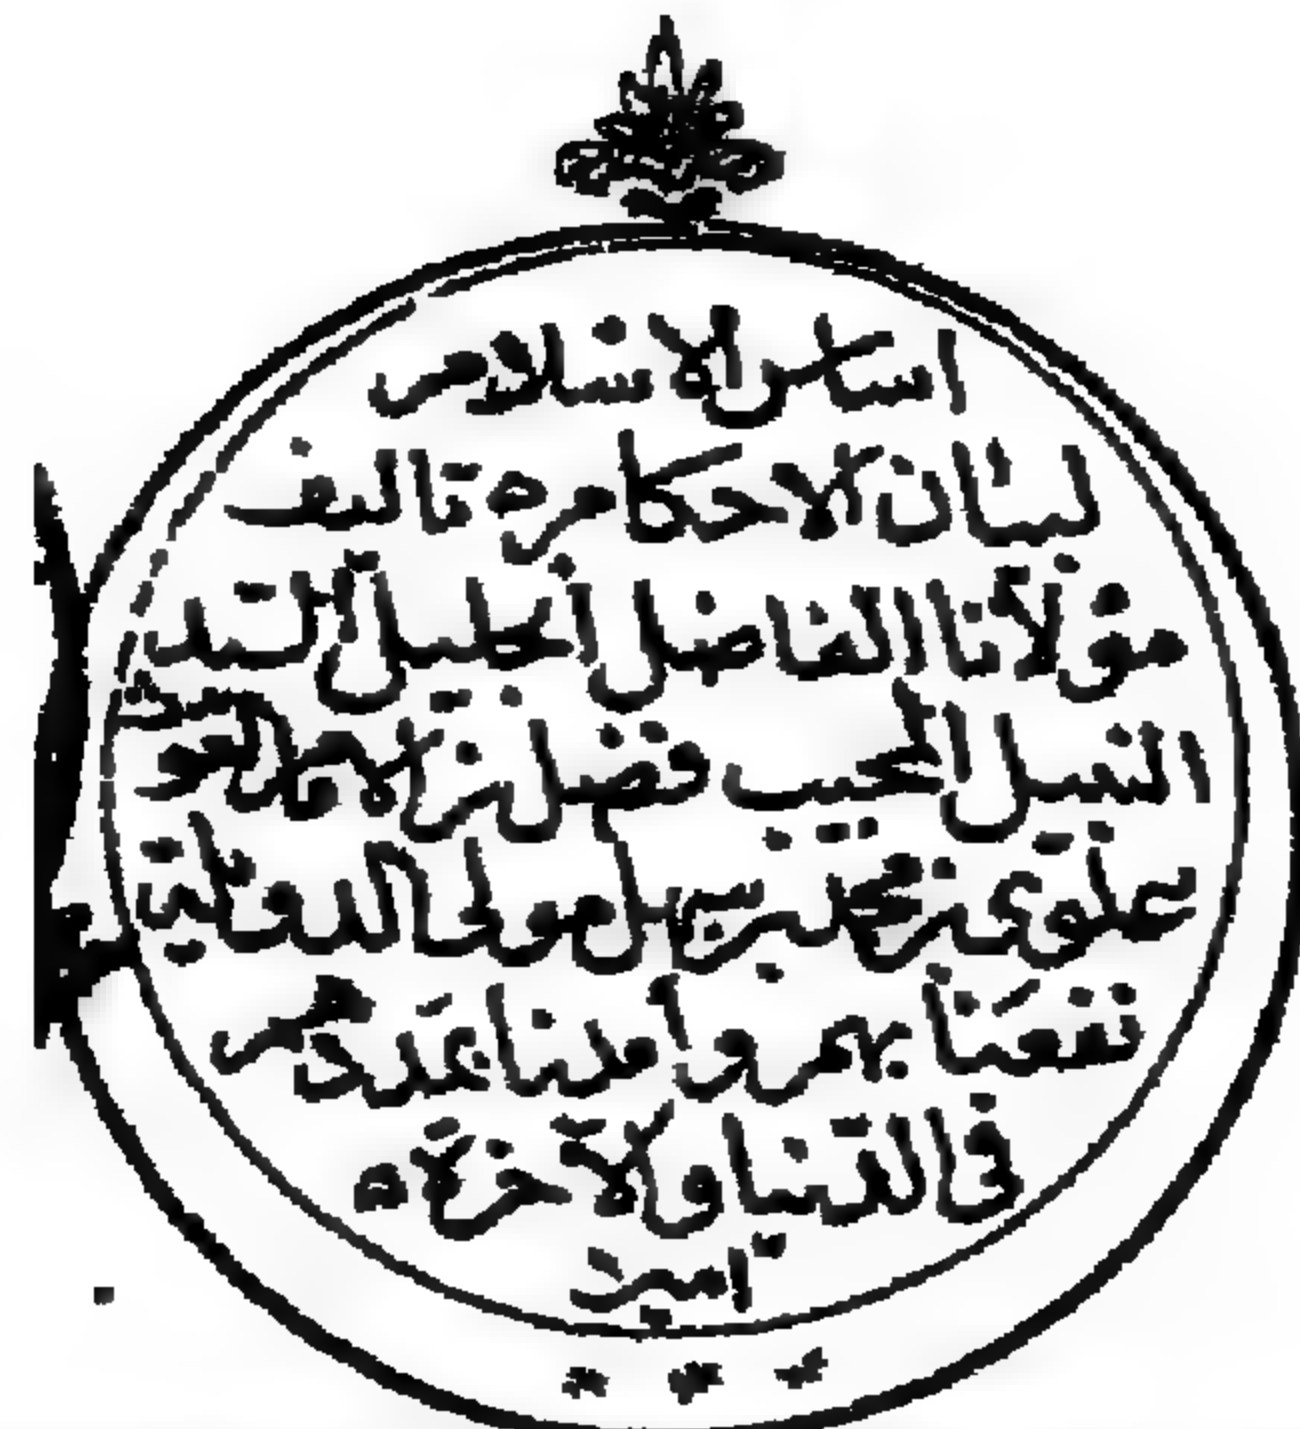 اساس الاسلام
لبيان الاحكام ه تاليف
مولانا الفاضل الجليل السيد
النبيل الحبيب فضل بن
علوي بن محمد بن سهل مولى الدويلة
نفعنا بهم وامدنا بمددهم
في الدنيا والآخرة ه
امين